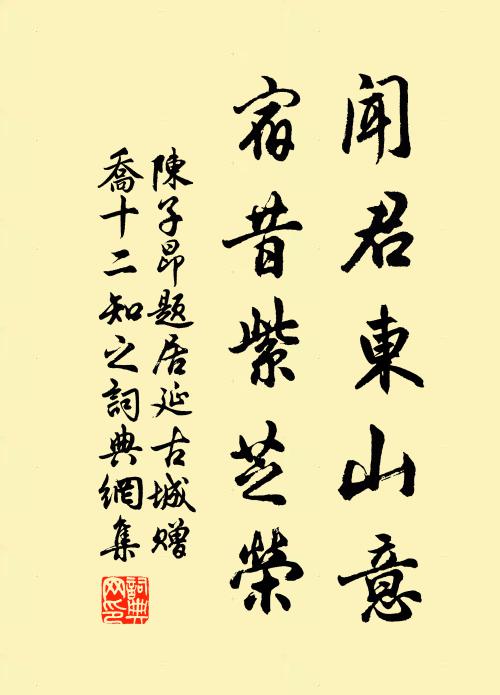 聞君東山意
宿昔紫芝榮
陳子昂題居延古城贈
喬十二知之詞典網集